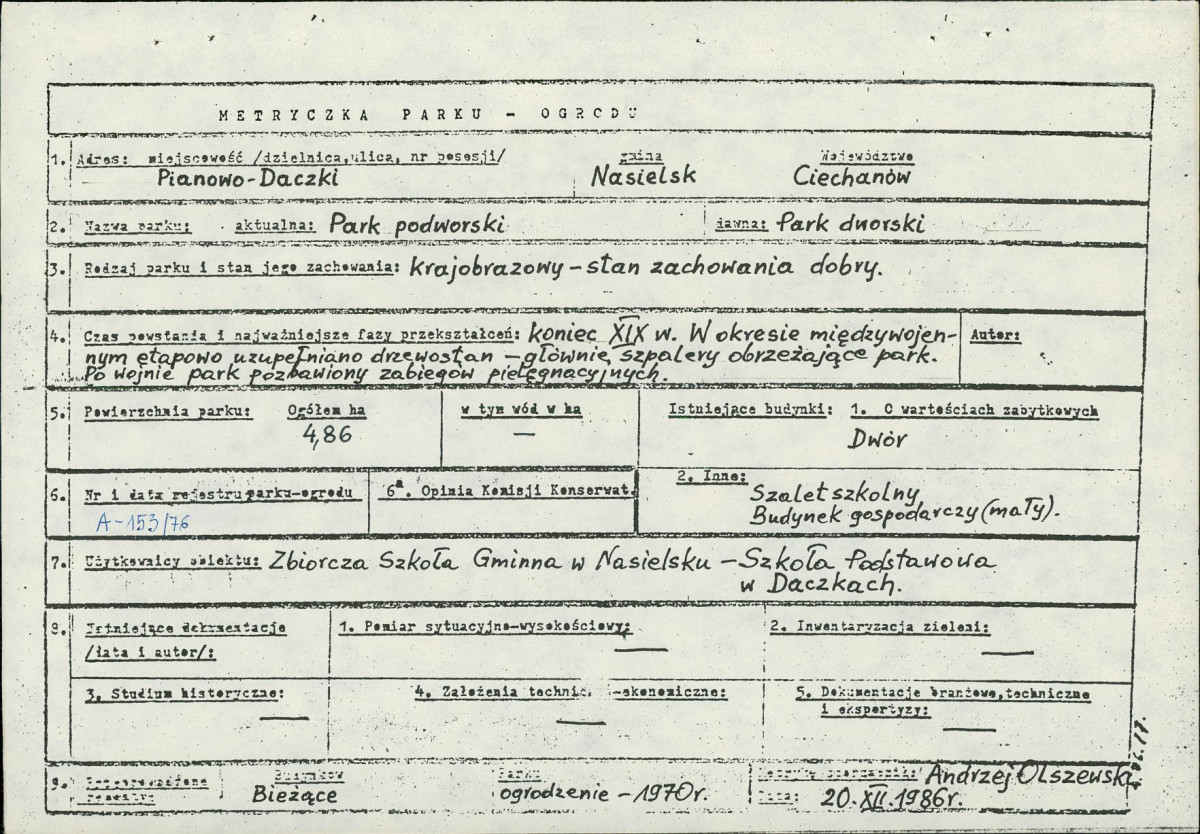 METRYCZKA PARKU - OGRODU
1. Adres: miejscowość /dzielnica,ulica, nr posesji/ gmina Województwo
Pianowo-Daczki Nasielsk Ciechanów
2. Nazwa parku: aktualna: Park podworski dawna: Park dworski
3. Rodzaj parku i stan jego zachowania: krajobrazowy – stan zachowania dobry.
4. Czas powstania i najważniejsze fazy przekształceń: koniec XIX w. W okresie międzywojen- Autor:
nym etapowo uzupełniano drzewostan – głównie szpalery obrzeżające park.
Po wojnie park pozbawiony zabiegów pielęgnacyjnych.
5. Powierzchnia parku: Ogółem ha w tym wód w ha Istniejące budynki: 1. O wartościach zabytkowych
4,86 — Dwór
6. Nr i data rejestru parku-ogrodu 6a. Opinia Komisji Konserwat. 2. Inne: Szalet szkolny,
A-153/76 Budynek gospodarczy (mały).
7. Użytkownicy obiektu: Zbiorcza Szkoła Gminna w Nasielsku – Szkoła Podstawowa
w Daczkach.
8. Istniejące dokumentacje 1. Pomiar sytuacyjno-wysokościowy: — 2. Inwentaryzacja zieleni: —
/data i autor/:
3. Studium historyczne: — 4. Założenia technic. -ekonomiczne: — 5. Dokumentacje branżowe,techniczne
i ekspertyzy: —
9. Przeprowadzone Budynków Parku Andrzej Olszewski
remonty Bieżące ogrodzenie – 1970r. Data: 20.XII.1986r.